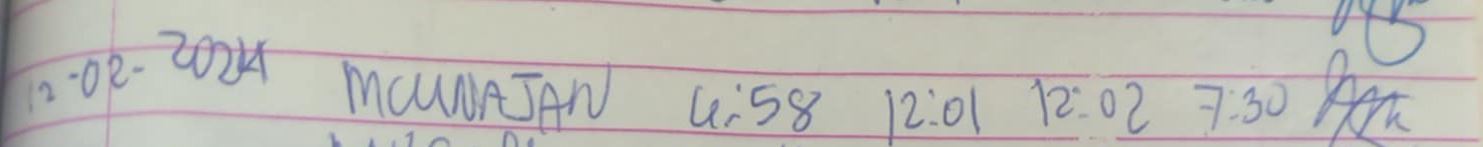 12-02-2024 MCUNAJAN 4:58 12:01 12:02 7:30